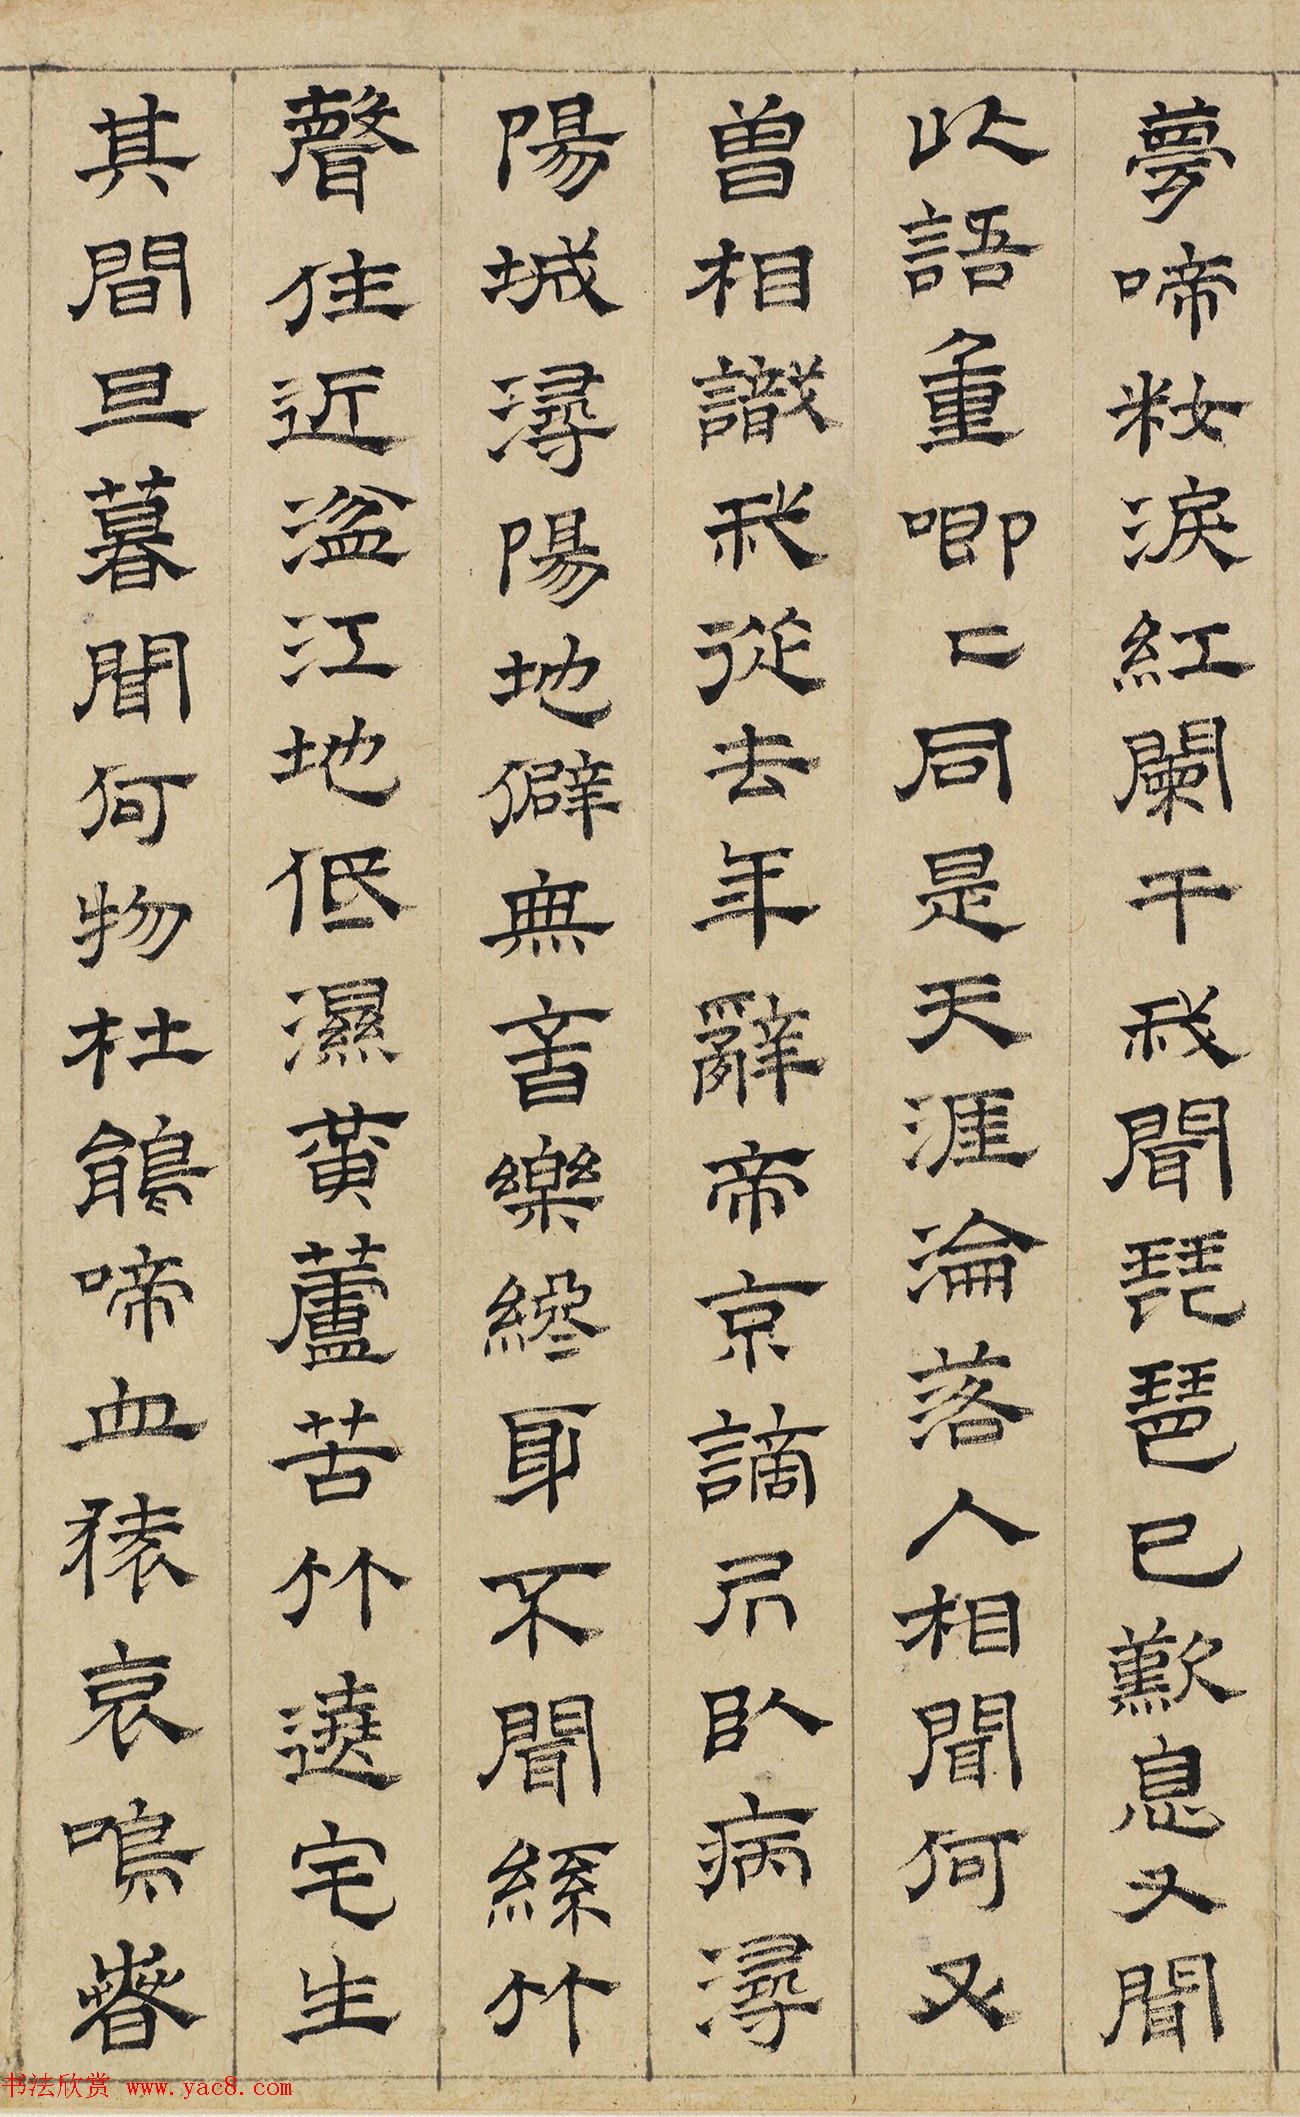 夢啼籹淚紅闌干我聞琵琶已歎息又聞
此語重唧〻同是天涯淪落人相聞何必
曾相識我從去年辭帝京謫居臥病潯
陽城潯陽地僻無音樂終耳不聞絲竹
聲住近湓江地低濕黃蘆苦竹遶宅生
其間旦暮聞何物杜鵑啼血猿哀鳴春
书法欣赏 www.yac8.com